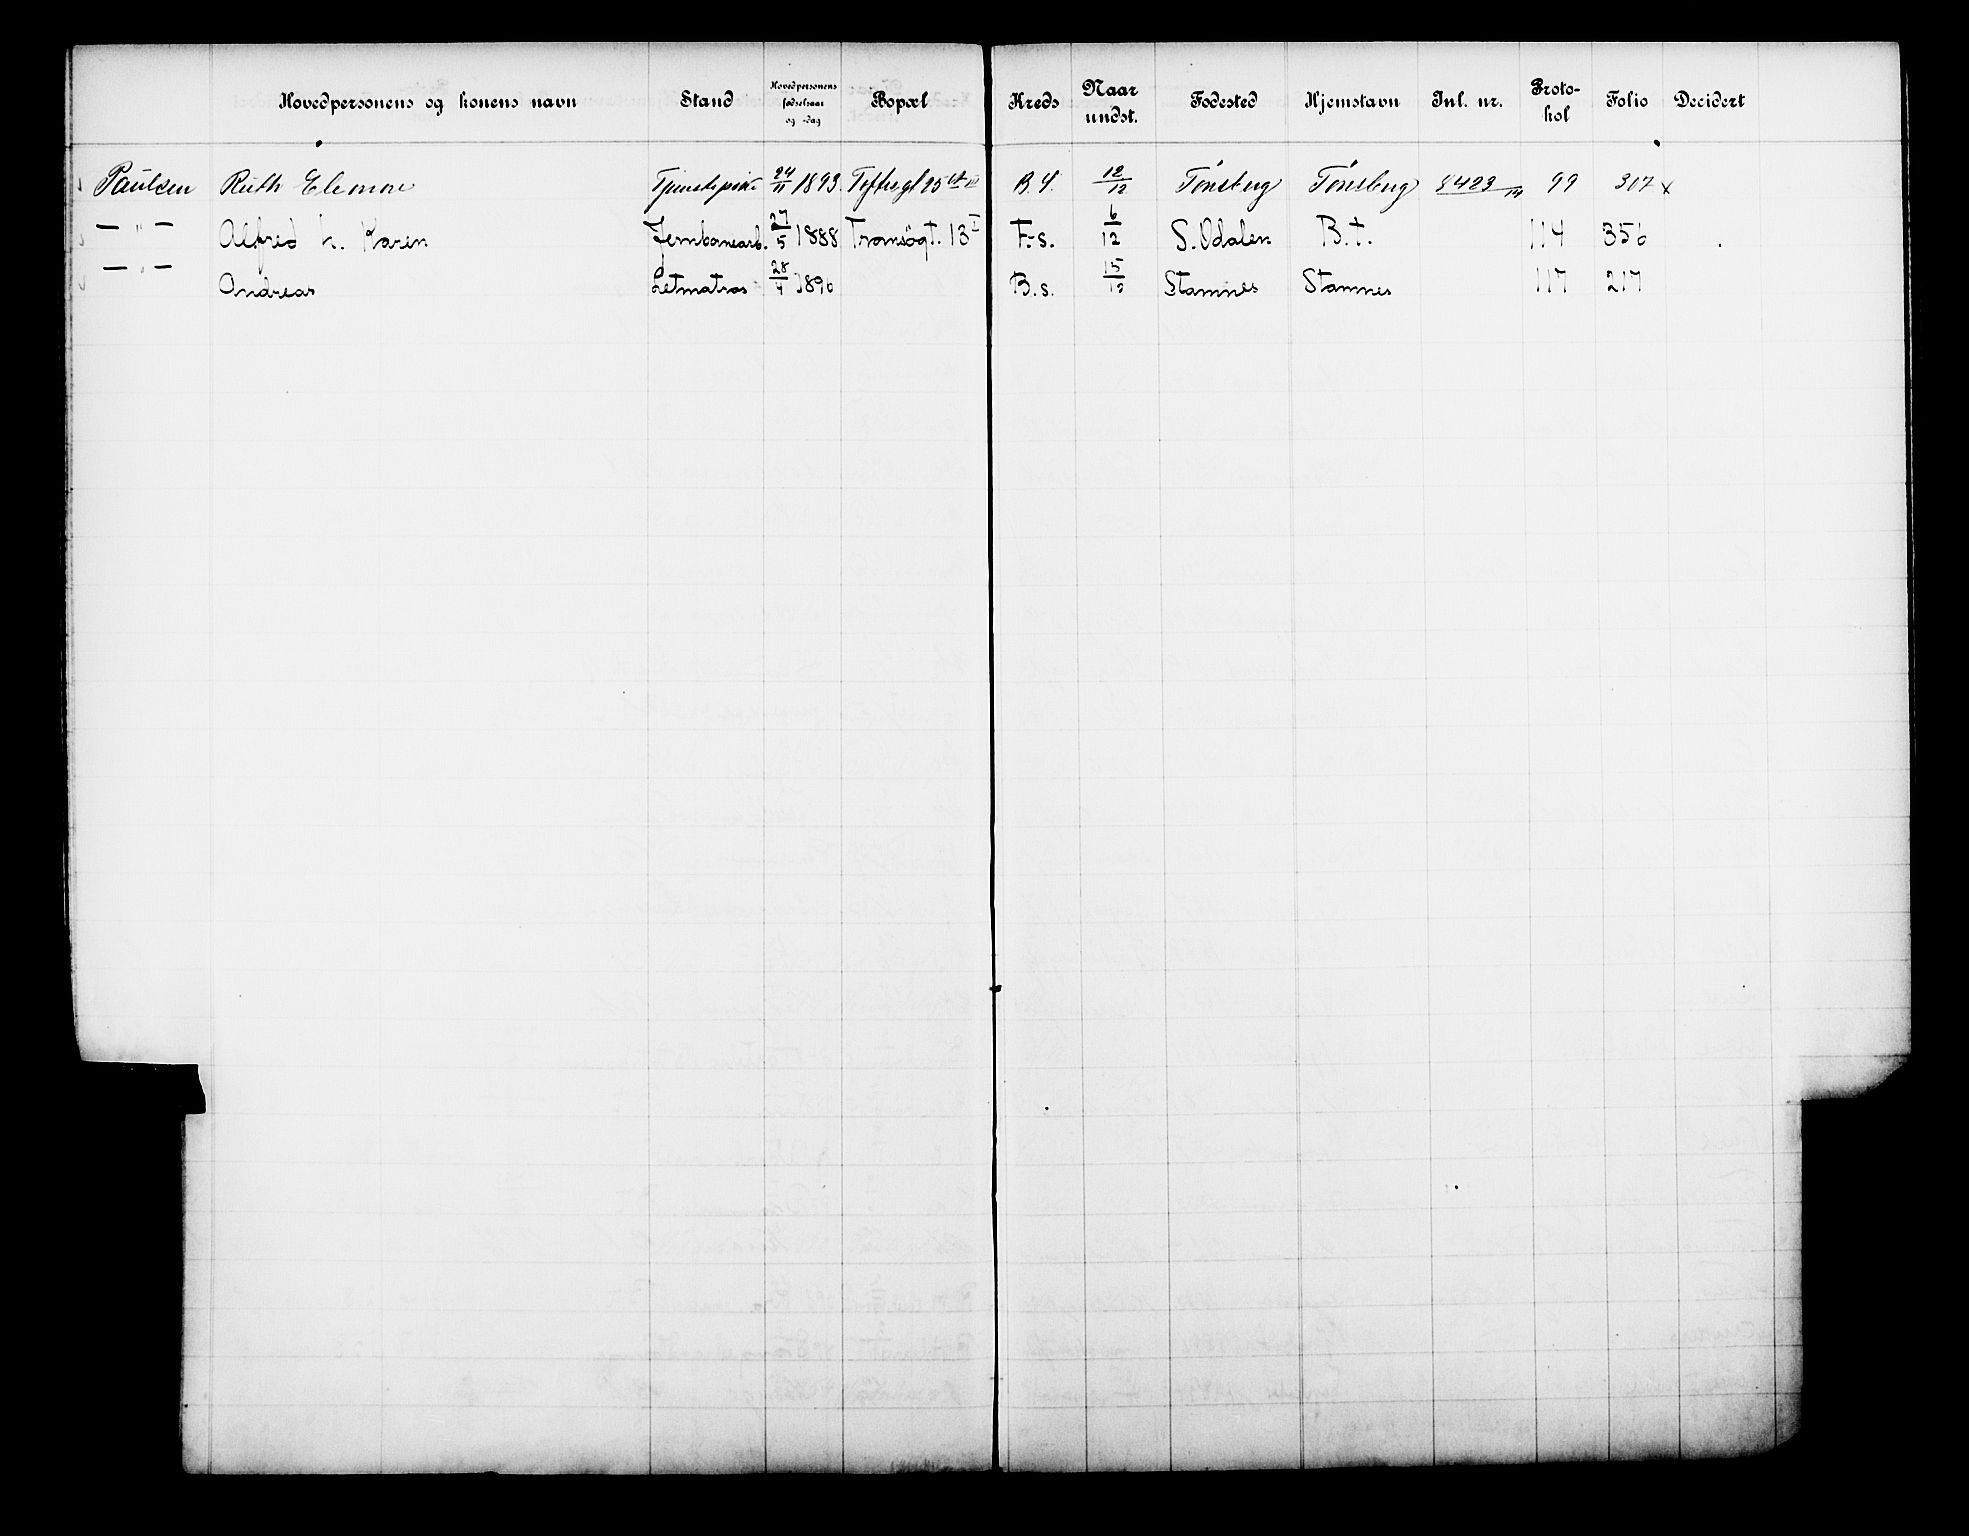 Hovedpersonens og konens navn Stand Hovedpersonens fødselsaar og -dag Bopæl Kreds Naar undst. Fødested Hjemstavn Inl. nr. Proto-kol Folio Decidert
Paulsen Ruth Elenore Tjenestepike 24/11 1893 Toftesgt 25 III B.S. 12/12 Tönsberg Tönsberg 8423 99 307 x
— " — Alfred h. Karen Jernbanearb. 27/5 1888 Tromsögt. 13 I F.s. 6/12 S. Odalen B.t. 114 356
— " — Andreas Letmatros 28/4 1896 B.s. 15/12 Stamnes Stamnes 117 217